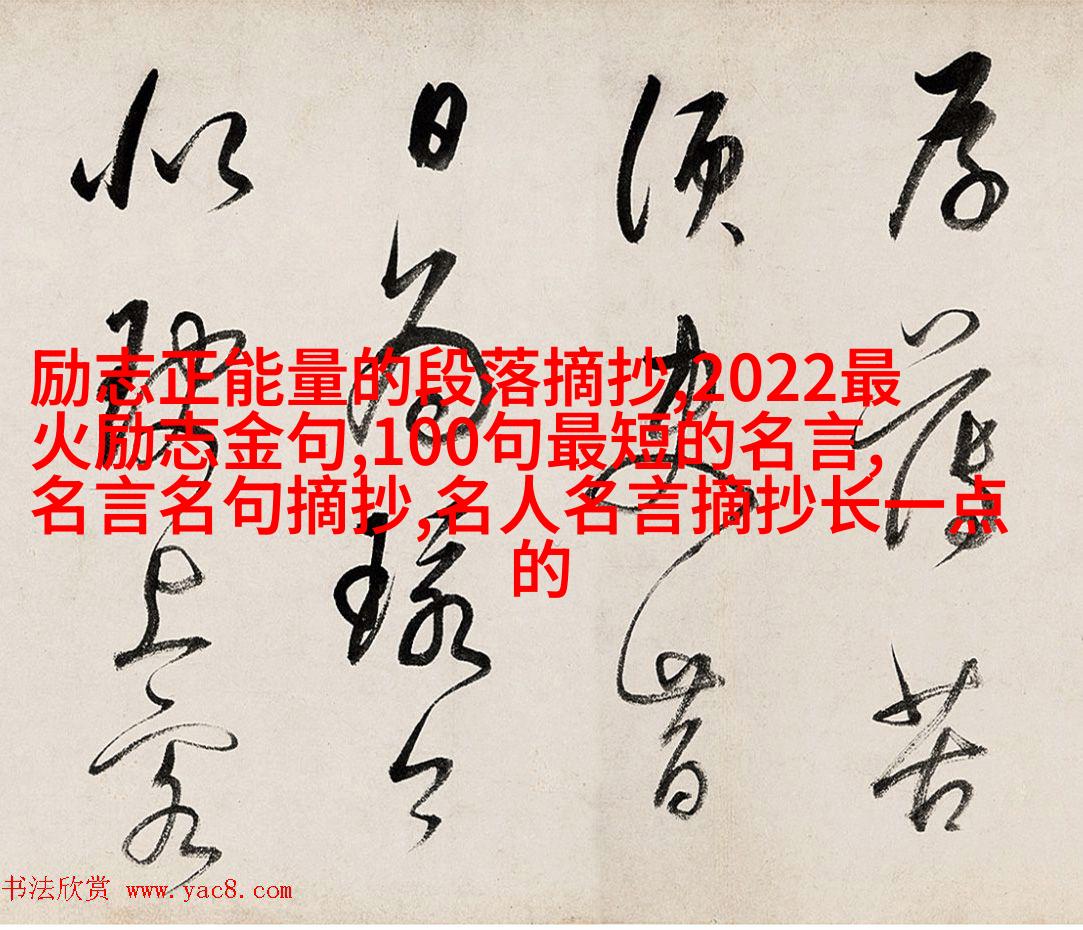 薄苦
须昔
日為
似上客
励志正能量的段落摘抄,2022最
火励志金句,100句最短的名言,
名言名句摘抄,名人名言摘抄长一点
的
书法欣赏 www.yac8.com